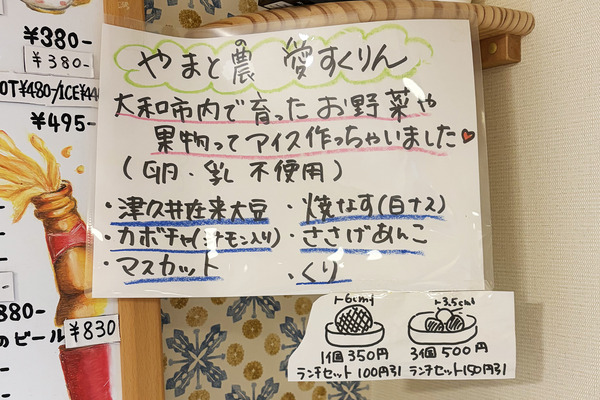 ¥380-
¥380-
OT¥480/ICE¥4
¥495-
380-
のビール
¥830
やまと農の愛すくりん
大和市内で育ったお野菜や
果物ってアイス作っちゃいました♥
(卵・乳不使用)
・津久井在来大豆
・焼なす(白ナス)
・カボチャ(シナモン入り)
・ささげあんこ
・マスカット
・くり
6cm
3.5cm
1個350円
3個500円
ランチセット100円引
ランチセット150円引